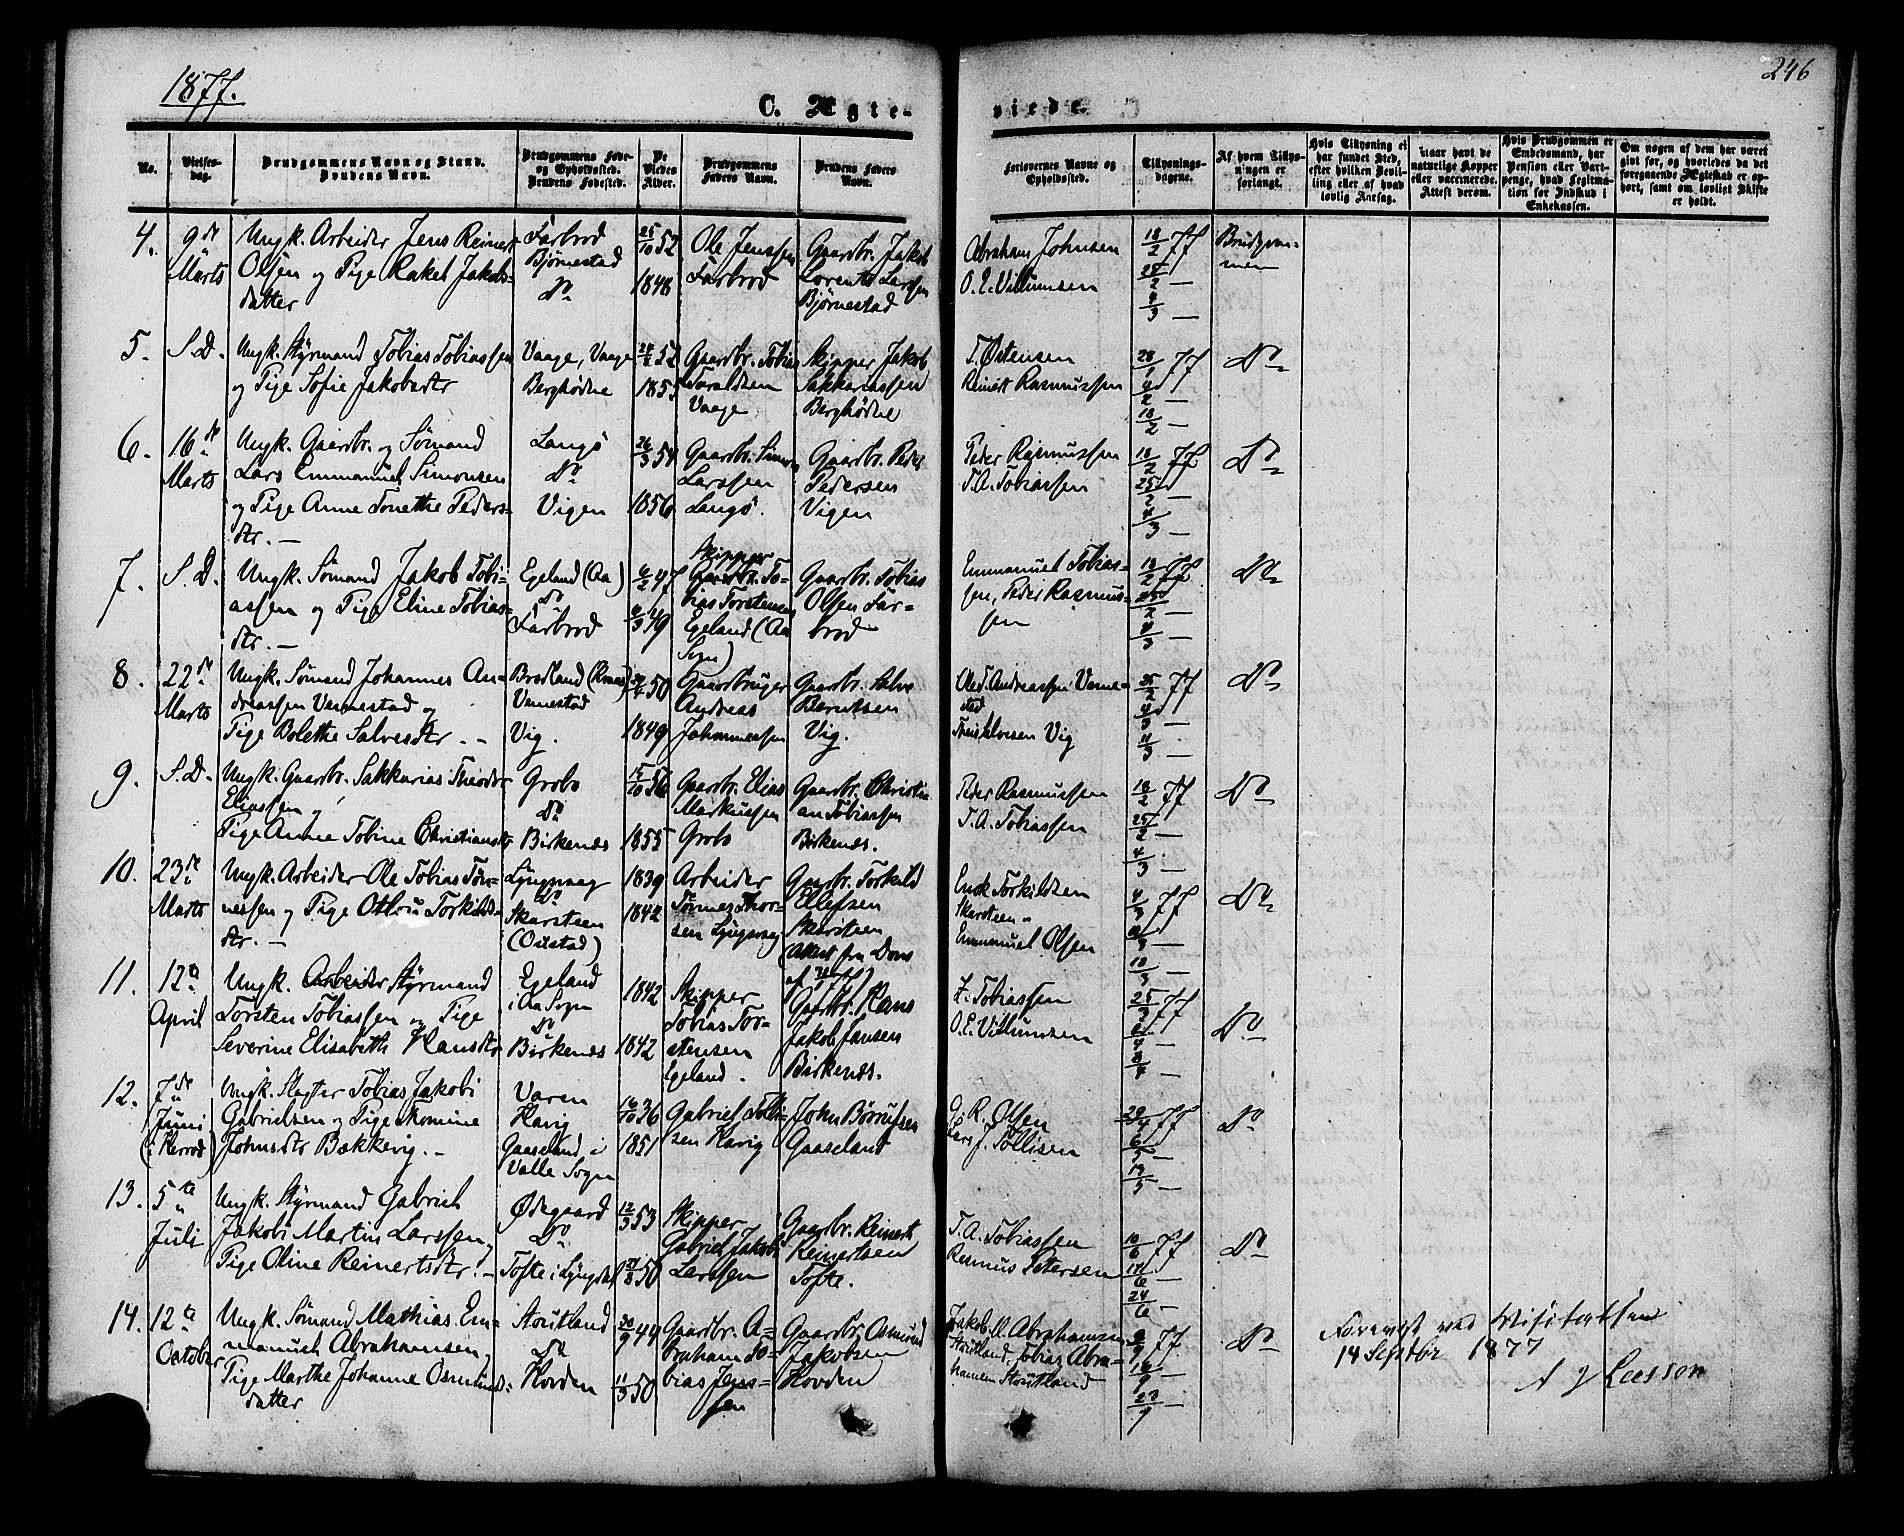 1877.
246
C. Ægte-
viede.
No.
Vielses-
dag.
Brudgommens Navn og Stand.
Brudens Navn.
Brudgommens Føde-
og Opholdssted.
Brudens Fødested.
De
Viedes
Alder.
Brudgommens
Faders Navn.
Brudens Faders
Navn.
Forlovernes Navne og
Opholdssted.
Tillysnings-
dagene.
Af hvem Tillys-
ningen er
forlangt.
Hvis Tillysning ei
har fundet Sted,
efter hvilken Bevil-
ling eller af hvad
lovlig Aarsag.
Naar havt de
naturlige Kopper
eller vaccinerede.
Attest derom.
Hvis Brudgommen er
Embedsmand, har
Pension eller Vart-
penge, hvad Legitima-
tion for Indskud i
Enkekassen.
Om nogen af dem har været
gift før, og hvorledes da det
foregaaende Ægteskab er op-
hørt, samt om lovligt Skifte
er holdt.
4.
9de
Marts
Ungk. Arbeider Jens Reinert
Olsen og Pige Rakel Jakobs-
datter
Farbrod
Bjørnestad
Do
25/10 52
1848
Ole Jenssen
Farbrod
Gaardbr. Jakob
Lorents Larssen
Bjørnestad
Abraham Johnsen
O. E. Villumsen
18/2 77
25/2 —
4/3 —
Brudgom-
men
5.
S. D.
Ungk. Styrmand Tobias Tobiassen
og Pige Sofie Jakobsdtr
Vaage, Vaage
Berghødne
52
1853
Gaardbr. Tobias
Taraldsen
Vaage
Skipper Jakob
Sakkeriassen
Berghødne
T. Østensen
Reinert Rasmussen
28/1 77
4/2 —
18/2 —
Do
6.
16de
Marts
Ungk. Gaardbr. og Sømand
Lars Emmanuel Simonsen
og Pige Anne Tonette Peders-
dtr. —
Langø
Do
Vigen
26/3 54
1856
Gaardbr. Simon
Larssen
Langø.
Gaardbr. Peder
Pedersen
Vigen
Peder Rasmussen
T. A. Tobiassen
18/2 77
25/2 —
4/3 —
Do
7.
S. D.
Ungk. Sømand Jakob Tobi-
assen og Pige Eline Tobias-
dtr. —
Egeland (Aa)
Do
Farbrod
6/2 47
6/3 49
Skipper
Gaardbr. To-
bias Torstensen
Egeland (Aa
Sogn)
Gaardbr. Tobias
Olsen Far-
brod
Emmanuel Tobias-
sen, Peder Rasmus-
sen
18/2 77
25/2 —
4/3 —
Do
8.
22de
Marts
Ungk. Sømand Johannes An-
dreassen Vemestad og
Pige Bolette Salvesdtr. —
Vemestad
Vig.
50
1849
Gaardbruger
Andreas
Johannessen
Gaardbr. Salve
Berntsen
Vig.
Andreassen Veme-
stad
Vig
25/2 77
4/3 —
11/3 —
Do
9.
S. D.
Ungk. Gaardbr. Sakkarias Theodor
Eliassen og
Pige Anne Tobine Christiansdtr
Grobs
Do
Birkenes
15/10 56
1855
Gaardbr. Elias
Markussen
Grobs
Gaardbr. Christi-
an Tobiassen
Birkenes.
Peder Rasmussen
T. A. Tobiassen
18/2 77
25/2 —
4/3 —
Do
10.
23de
Marts
Ungk. Arbeider Ole Tobias Tøn-
nessen og Pige Otlou Torkilds-
dtr. —
Lyngsvaag
Do
Skarsteen
(Oustad)
1839
1842
Arbeider
Tønnes Thor-
sen Lyngsvaag
Gaardbr. Torkild
Ellefsen
Skarsteen
(Attest fra Doms
Enok Torkildsen
Skarsteen
Emmanuel Olsen
4/3 77
18/3 —
Do
11.
12te
April
Ungk. Arbeider Styrmand
Torsten Tobiassen og Pige
Severine Elisabeth Hansdtr
Egeland
i Aa Sogn
Do
Birkenes
1842
1842
Skipper
Tobias Tor-
stensen
Egeland.
Gaardbr. Hans
Jakob Jansen
Birkenes.
Z. Tobiassen
O. E. Villumsen
25/3 77
Do
12.
7de
Juni
(i Herred)
Ungk. Slagter Tobias Jakobi
Gabrielsen og Pige Momine
Johnsdtr Bækkevig. —
Varen
Havig
Gaaseland i
Valle Sogn
16/10 36
1851
Gabriel Tobi-
sen Havig
John Børrufsen
Gaaseland
G. R. Olsen
Lars J. Tollisen
29/4 77
6/5 —
13/5 —
Do
13.
5te
Juli
Ungk. Styrmand Gabriel
Jakobi Martin Larssen,
Pige Oline Reinertsdtr. —
Ødegaard
Do
Tofte i Lyngdal
12/3 53
50
Skipper
Gabriel Jakobi
Larssen
Gaardbr. Reinert
Reinertsen
Tofte.
T. A. Tobiassen
Rasmus Petersen
10/6 77
17/6 —
24/6 —
Do
14.
12te
October
Ungk. Sømand Mathias Em-
manuel Abrahamsen,
Pige Marthe Johanne Osmunds-
datter
Stoutland
Do
Hovden
30/9 44
11/3 50
Gaardbr. A-
braham To-
bias Jens-
sen
Gaardbr. Osmund
Jakobsen
Hovden
Jakob M. Abrahamsen
Stoutland, Tobias Abra-
hamsen Stoutland
9/9 77
16/9
23/9
Do
Forevist ved Visitatsen
14 Septbr 1877